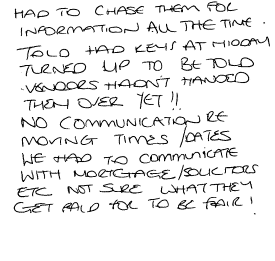 HAD TO CHASE THEM FOR
INFORMATION ALL THE TIME.
TOLD HAD KEYS AT MIDDAY
TURNED UP TO BE TOLD
VENDORS HADN'T HANDED
THEM OVER YET!!
NO COMMUNICATION RE
MOVING TIMES/DATES
WE HAD TO COMMUNICATE
WITH MORTGAGE/SOLICITORS
ETC NOT SURE WHAT THEY
GET PAID FOR TO BE FAIR!